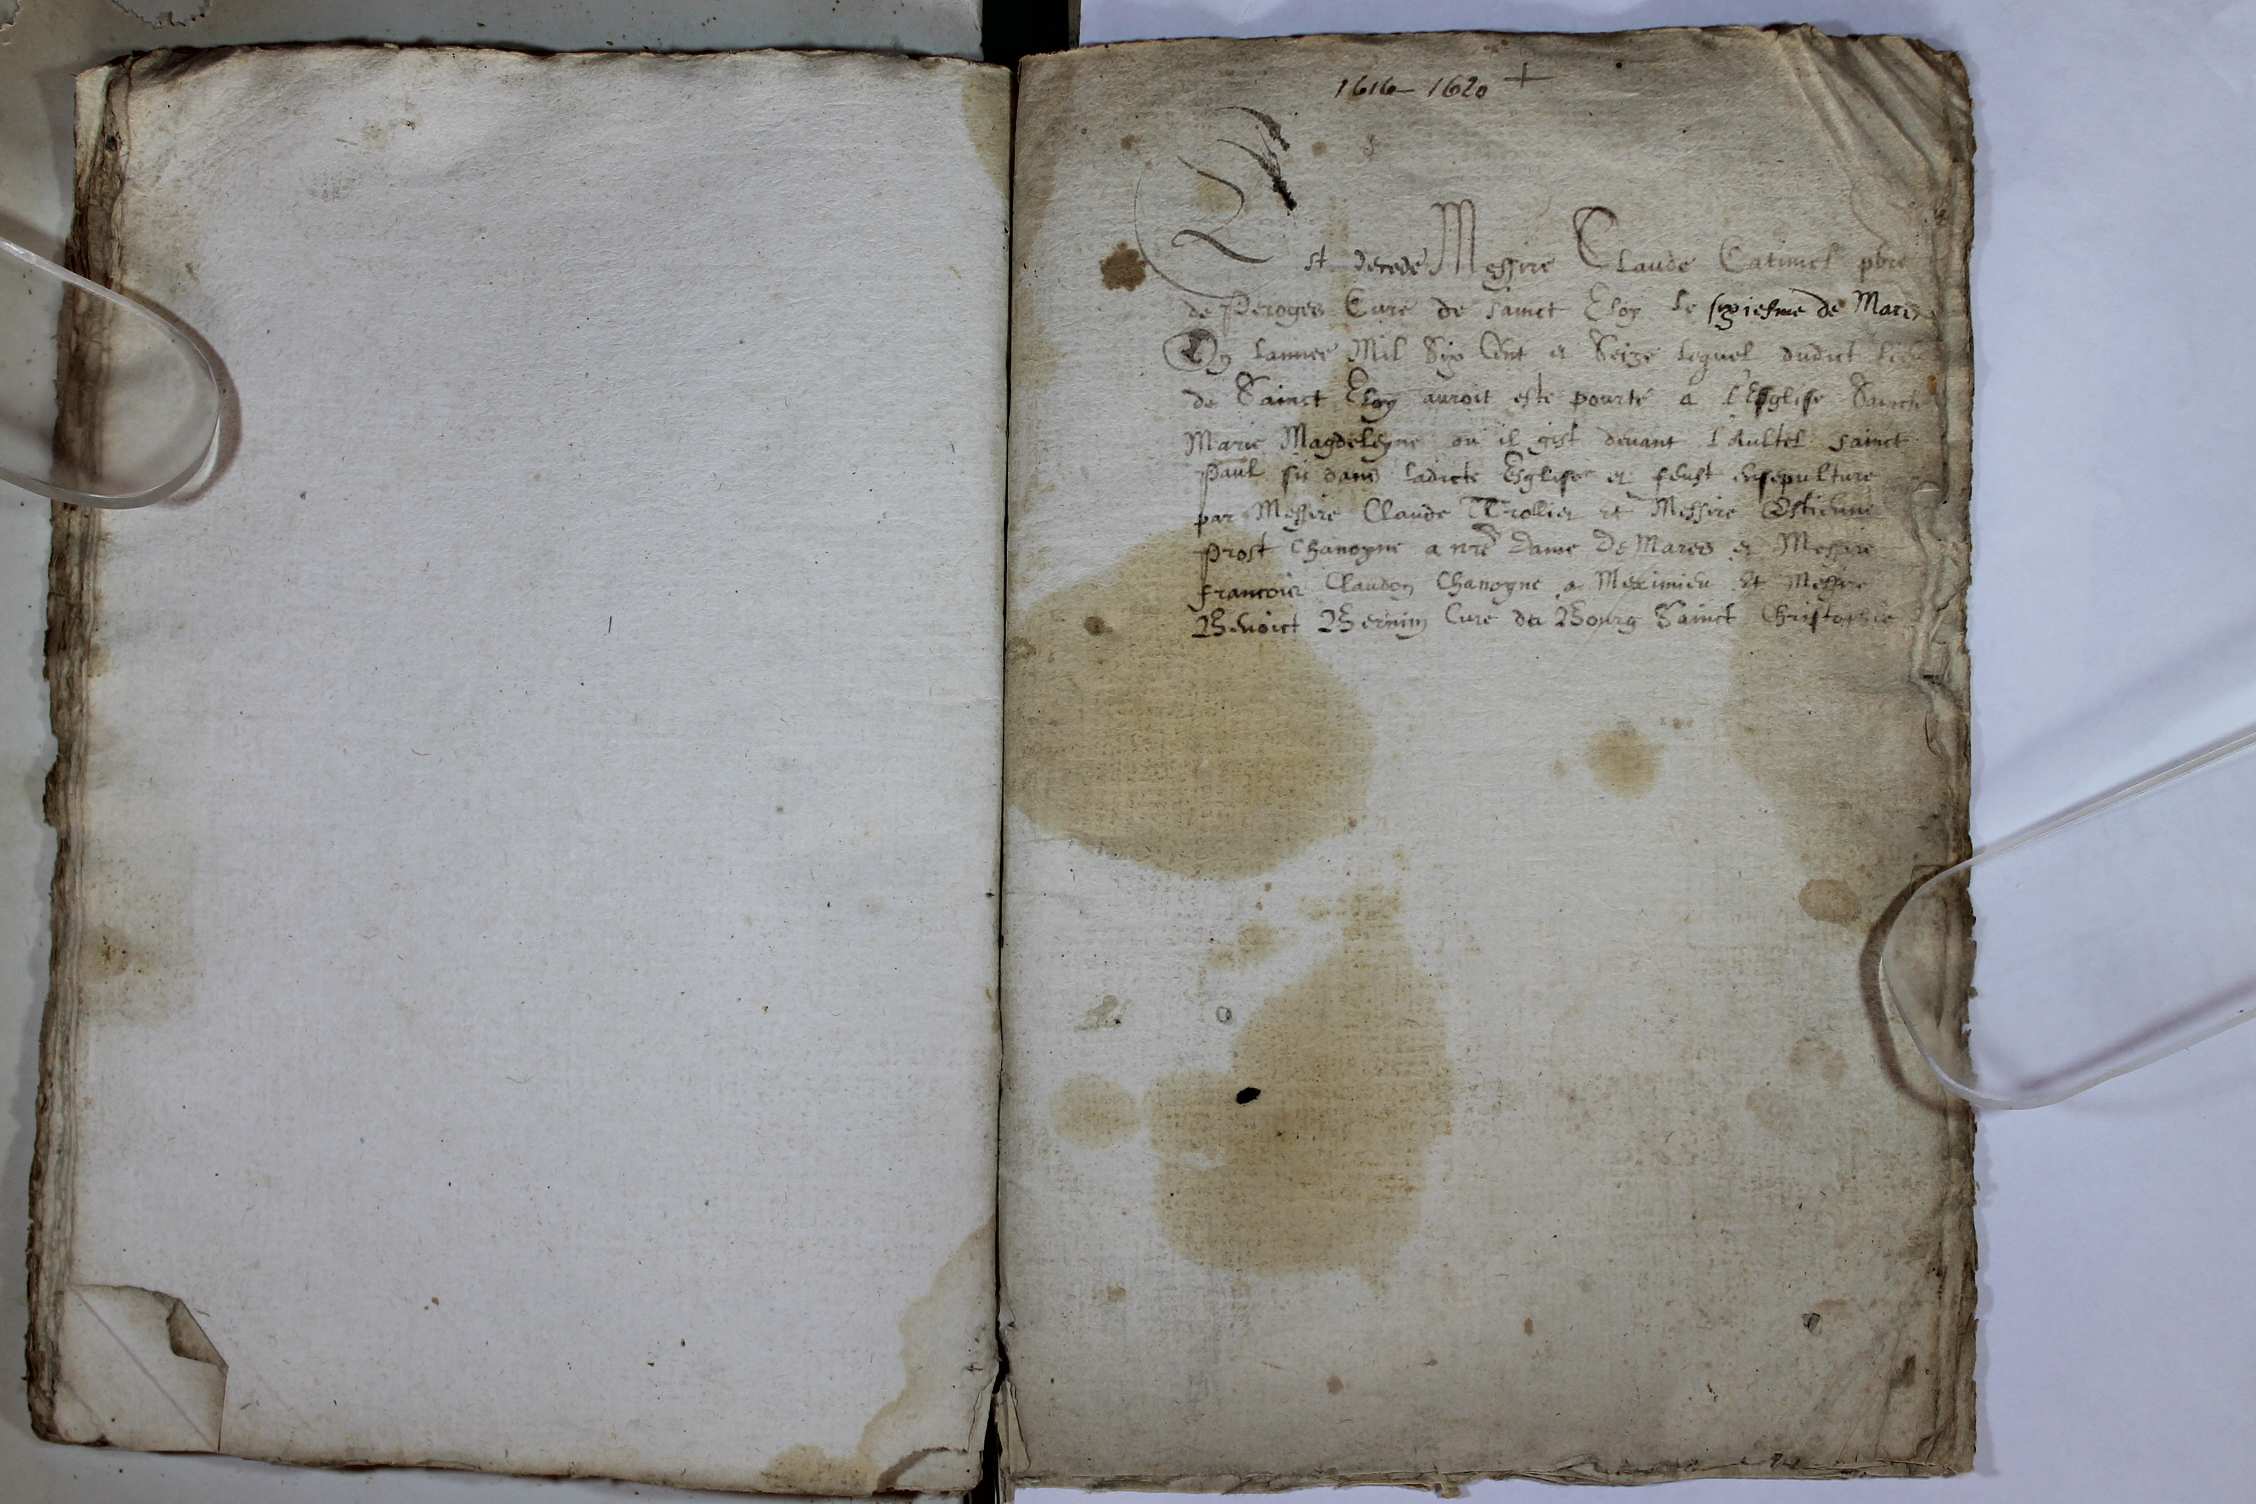 1616 - 1620 +
Est decede Messire Claude Catinel pbre
de Peroges Cure de sainct Eloy le sixiesme de Mars
En lannee Mil Six Cent et Seize lequel dudict lieu
de Sainct Eloy auroit este pourté a l'Esglise Saincte
Marie Magdeleyne ou il gist devant l'Aultel sainct
Paul sis dans ladicte Esglise et feust ensepulture
par Messire Claude Trollier et Messire Estienne
Prost Chanoyne a nre Dame De Mares et Messire
francois Claudon Chanoyne a Meximieu et Messire
Benoict Bernin Cure du Bourg Sainct Christophle